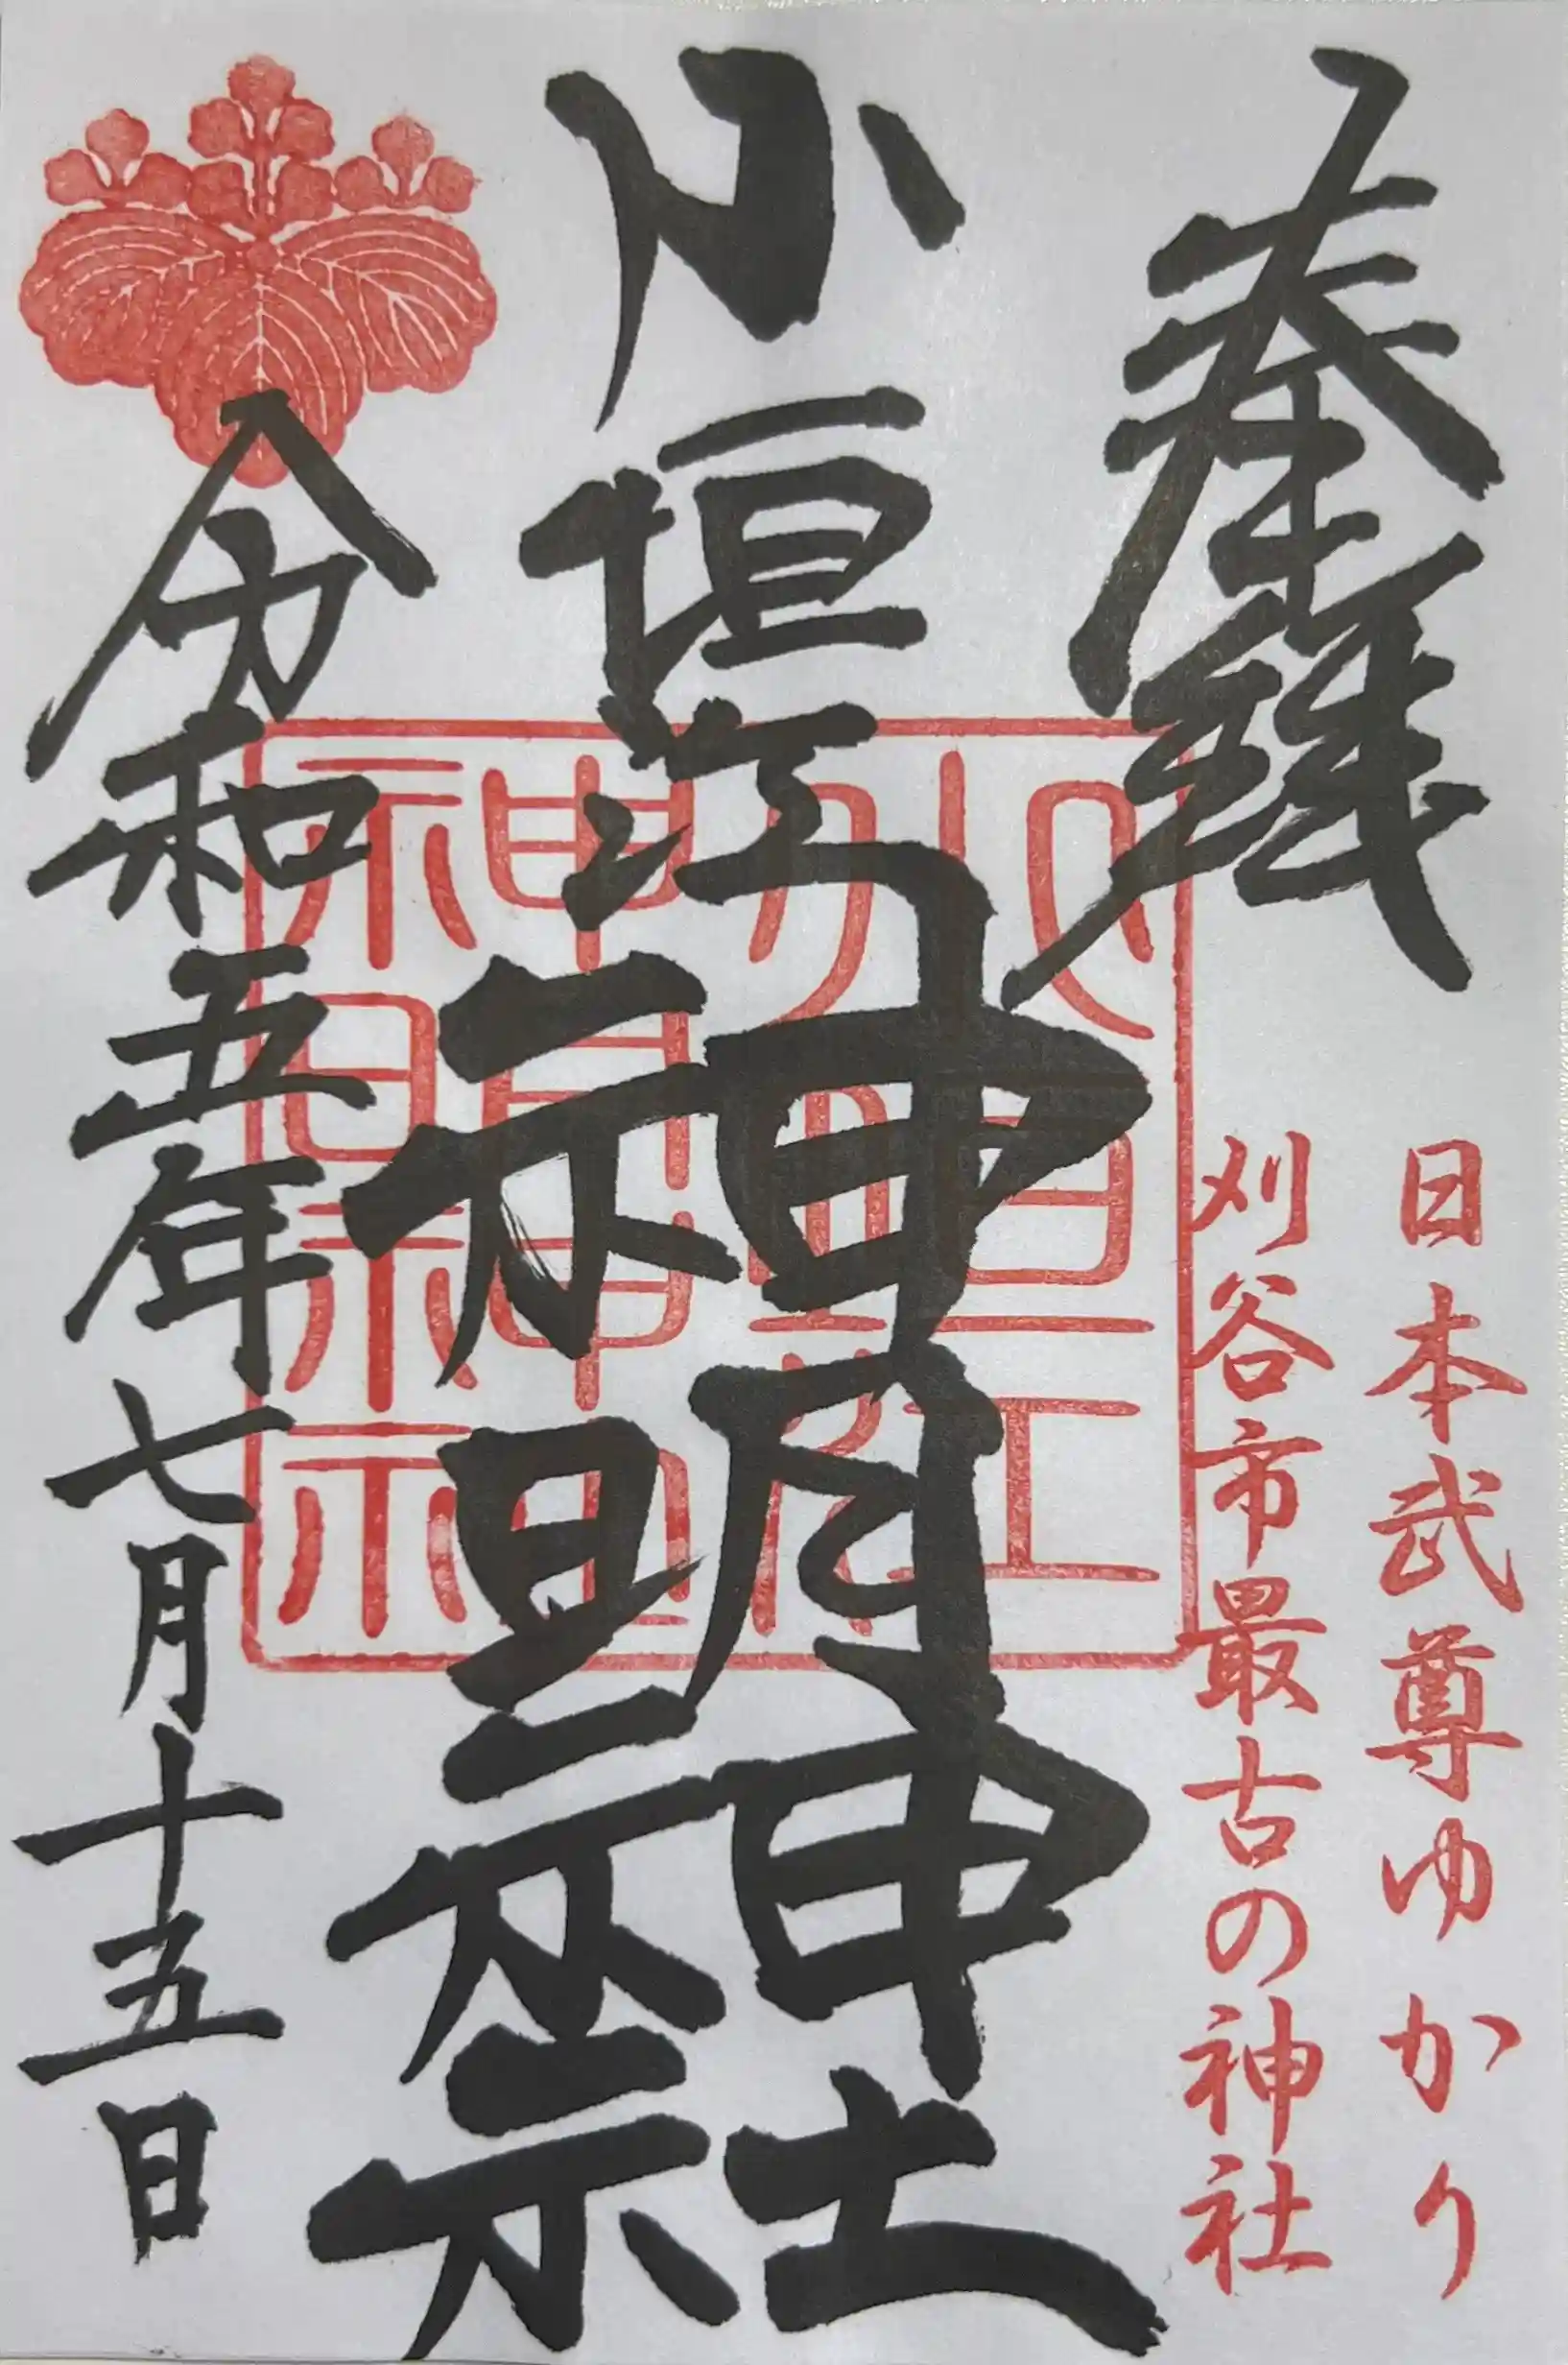 奉拝
日本武尊ゆかり
刈谷市最古の神社
小垣江神明神社
小垣江
神明神社
令和五年七月十五日